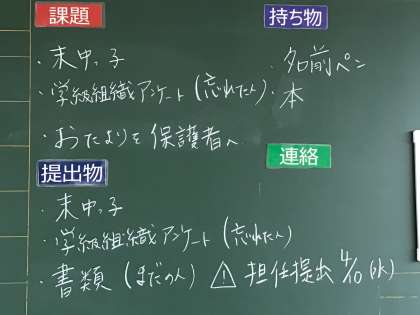 課題
・末中っ子
・学級組織アンケート(忘れた人)
・おたよりを保護者へ
持ち物
・名前ペン
・本
提出物
・末中っ子
・学級組織アンケート(忘れた人)
・書類(まだの人) ⚠ 担任提出 4/10(水)
連絡